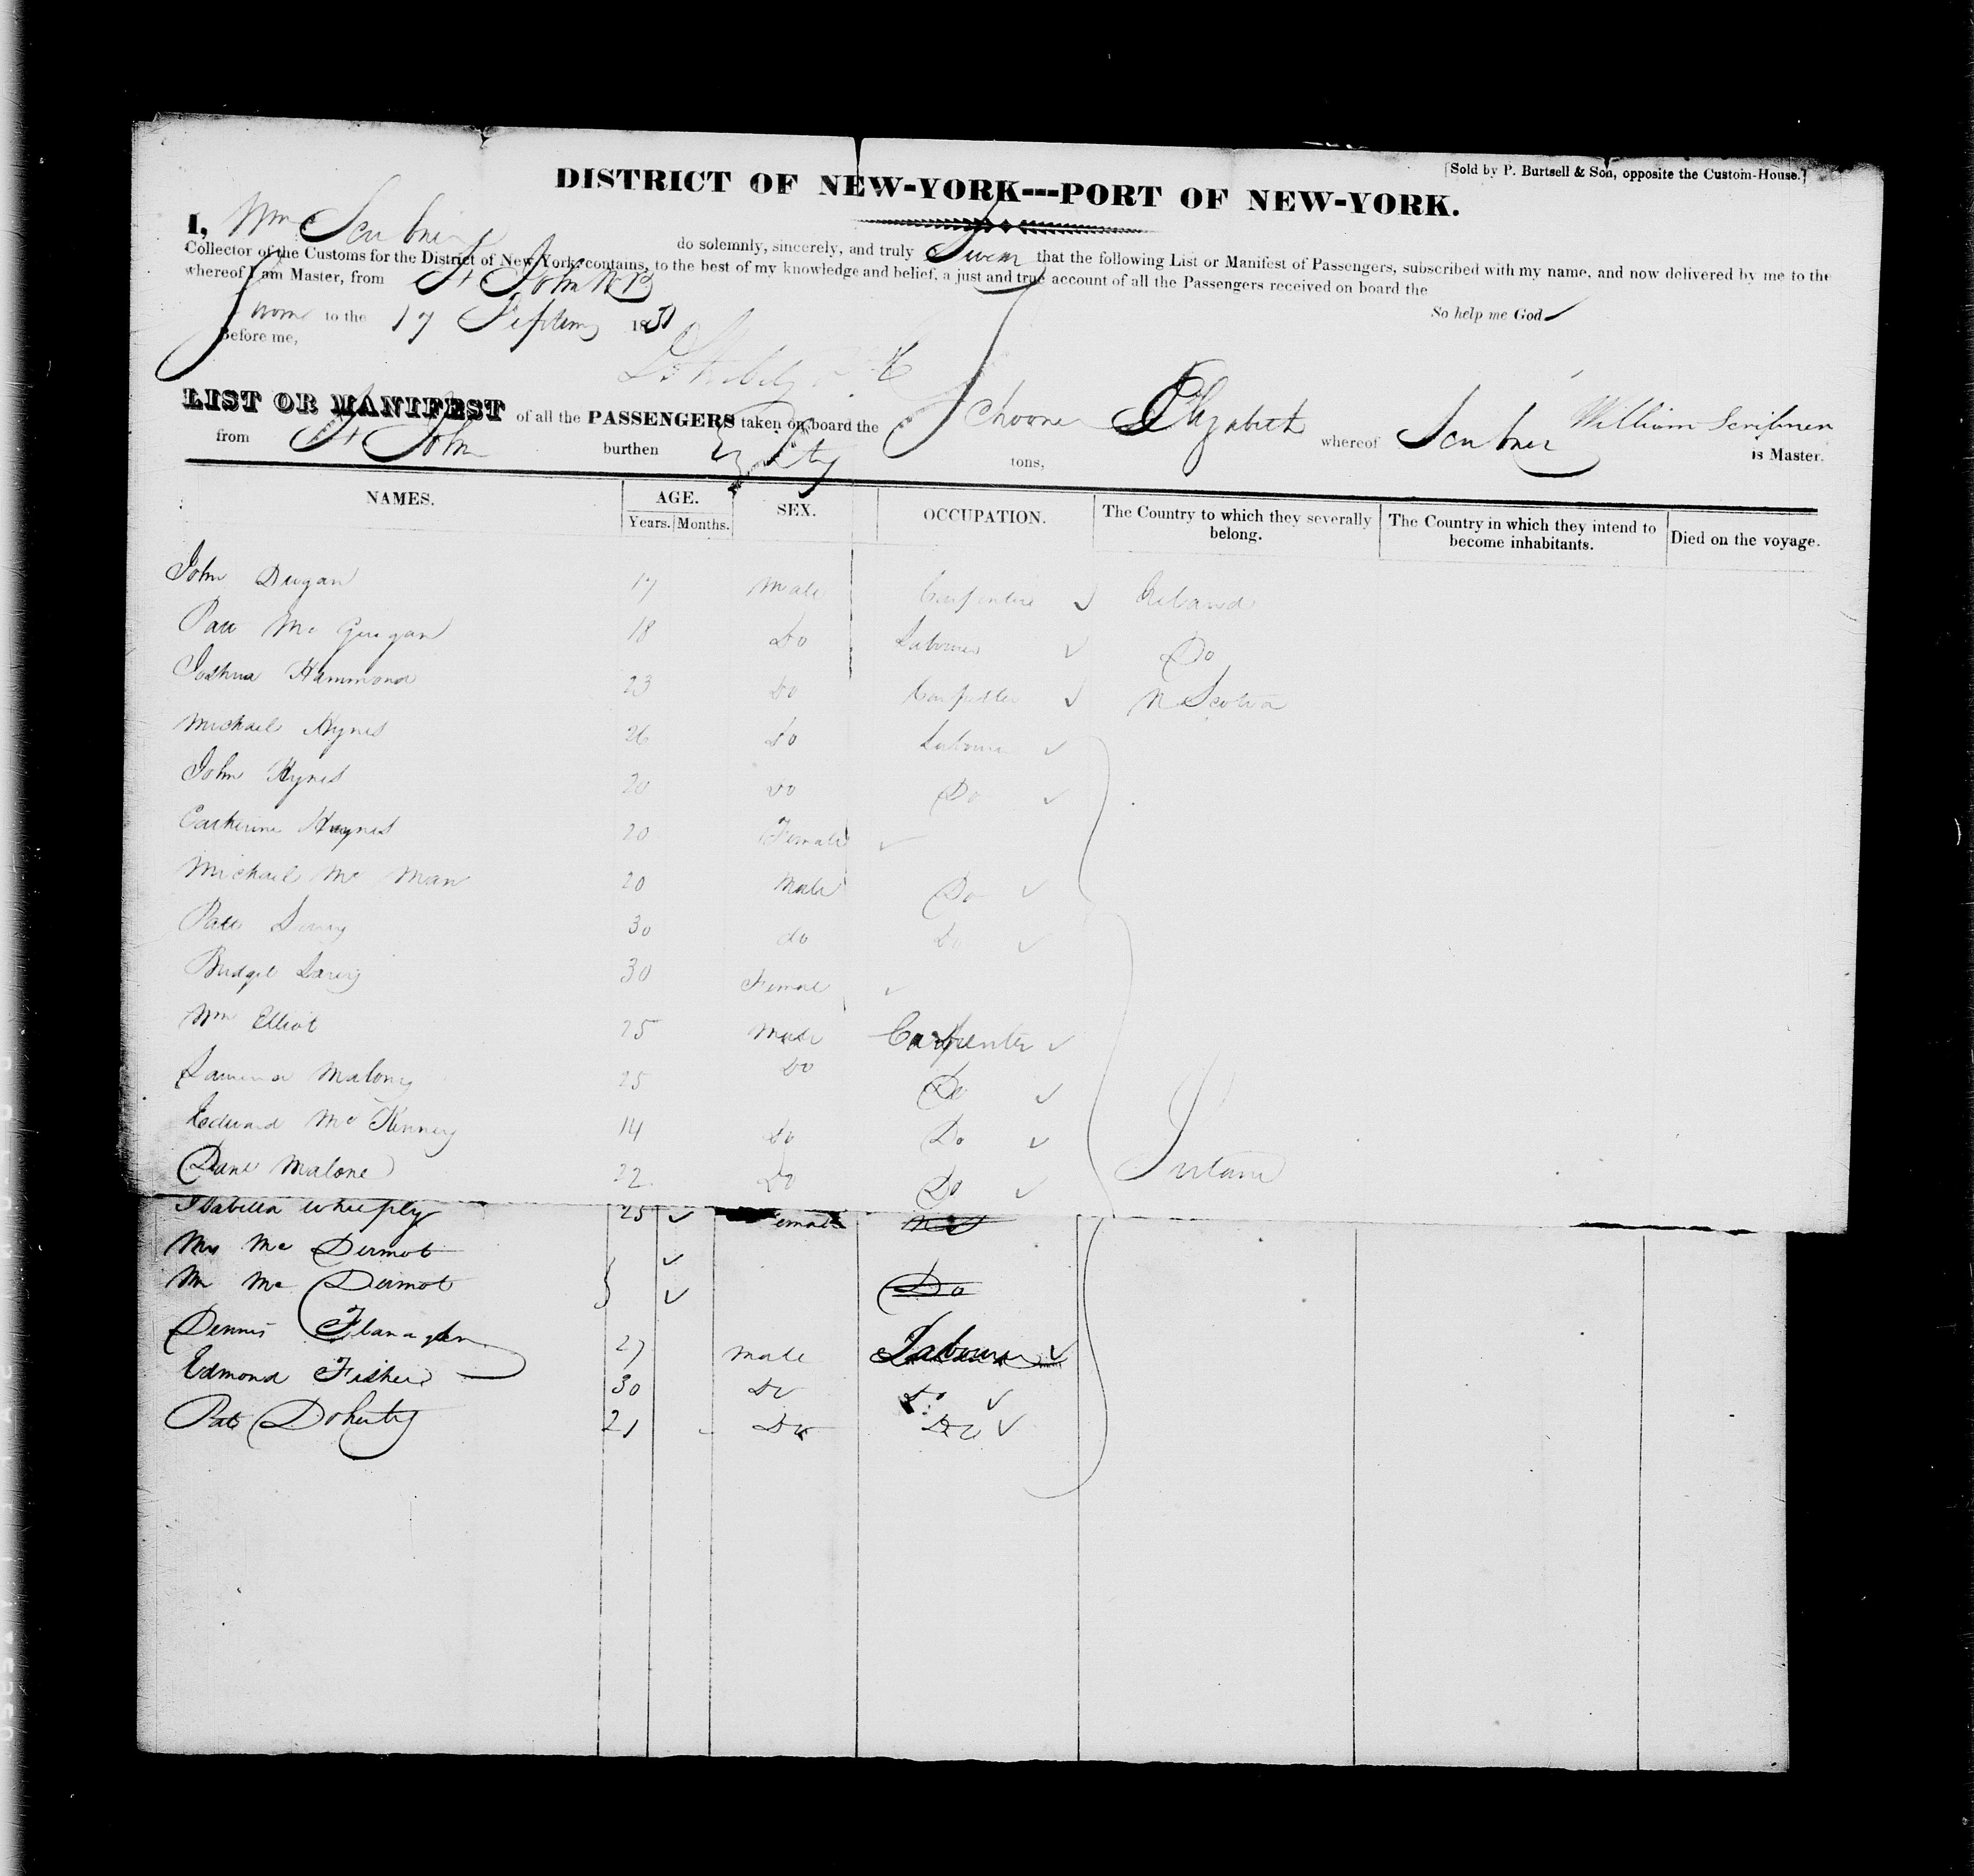 [Sold by P. Burtsell & Son, opposite the Custom-House.]
DISTRICT OF NEW-YORK---PORT OF NEW-YORK.
I, Wm Scribner do solemnly, sincerely, and truly Swear that the following List or Manifest of Passengers, subscribed with my name, and now delivered by me to the
Collector of the Customs for the District of New York, contains, to the best of my knowledge and belief, a just and true account of all the Passengers received on board the
whereof I am Master, from St John NB
So help me God
Sworn to the 17 Septem 183
Before me,
LIST OR MANIFEST of all the PASSENGERS taken on board the Schooner Elizabeth whereof Scribner William Scribner is Master.
from St John burthen Eighty tons,
NAMES. AGE. SEX. OCCUPATION. The Country to which they severally belong. The Country in which they intend to become inhabitants. Died on the voyage.
Years. Months.
John Dugan 17 Male Carpenter ✓ Ireland
Patt Mc Guigan 18 Do Labourer ✓ Do
Joshua Hammond 23 Do Carpenter ✓ N Scotia
Michael Hynes 26 Do Labourer ✓
John Hynes 20 Do Do ✓
Catherine Haynes 20 Female ✓
Michael Mc Man 20 Male Do ✓
Patt 30 do Do ✓
Bridget 30 Female ✓
Wm Elliot 25 Male Carpenter ✓
Malony 25 Do Do ✓
Edward Mc Kenney 14 Do Do ✓
Malone 22 Do Do ✓ Ireland
Isabella Wheeply 25 ✓ Female
Mrs Mc Dermot ✓
Mr Mc Dermot ✓ Do
Dennis Flanaghen 27 male Labourer ✓
Edmond Fisher 30 Do Do ✓
Patt Doherty 21 Do Do ✓